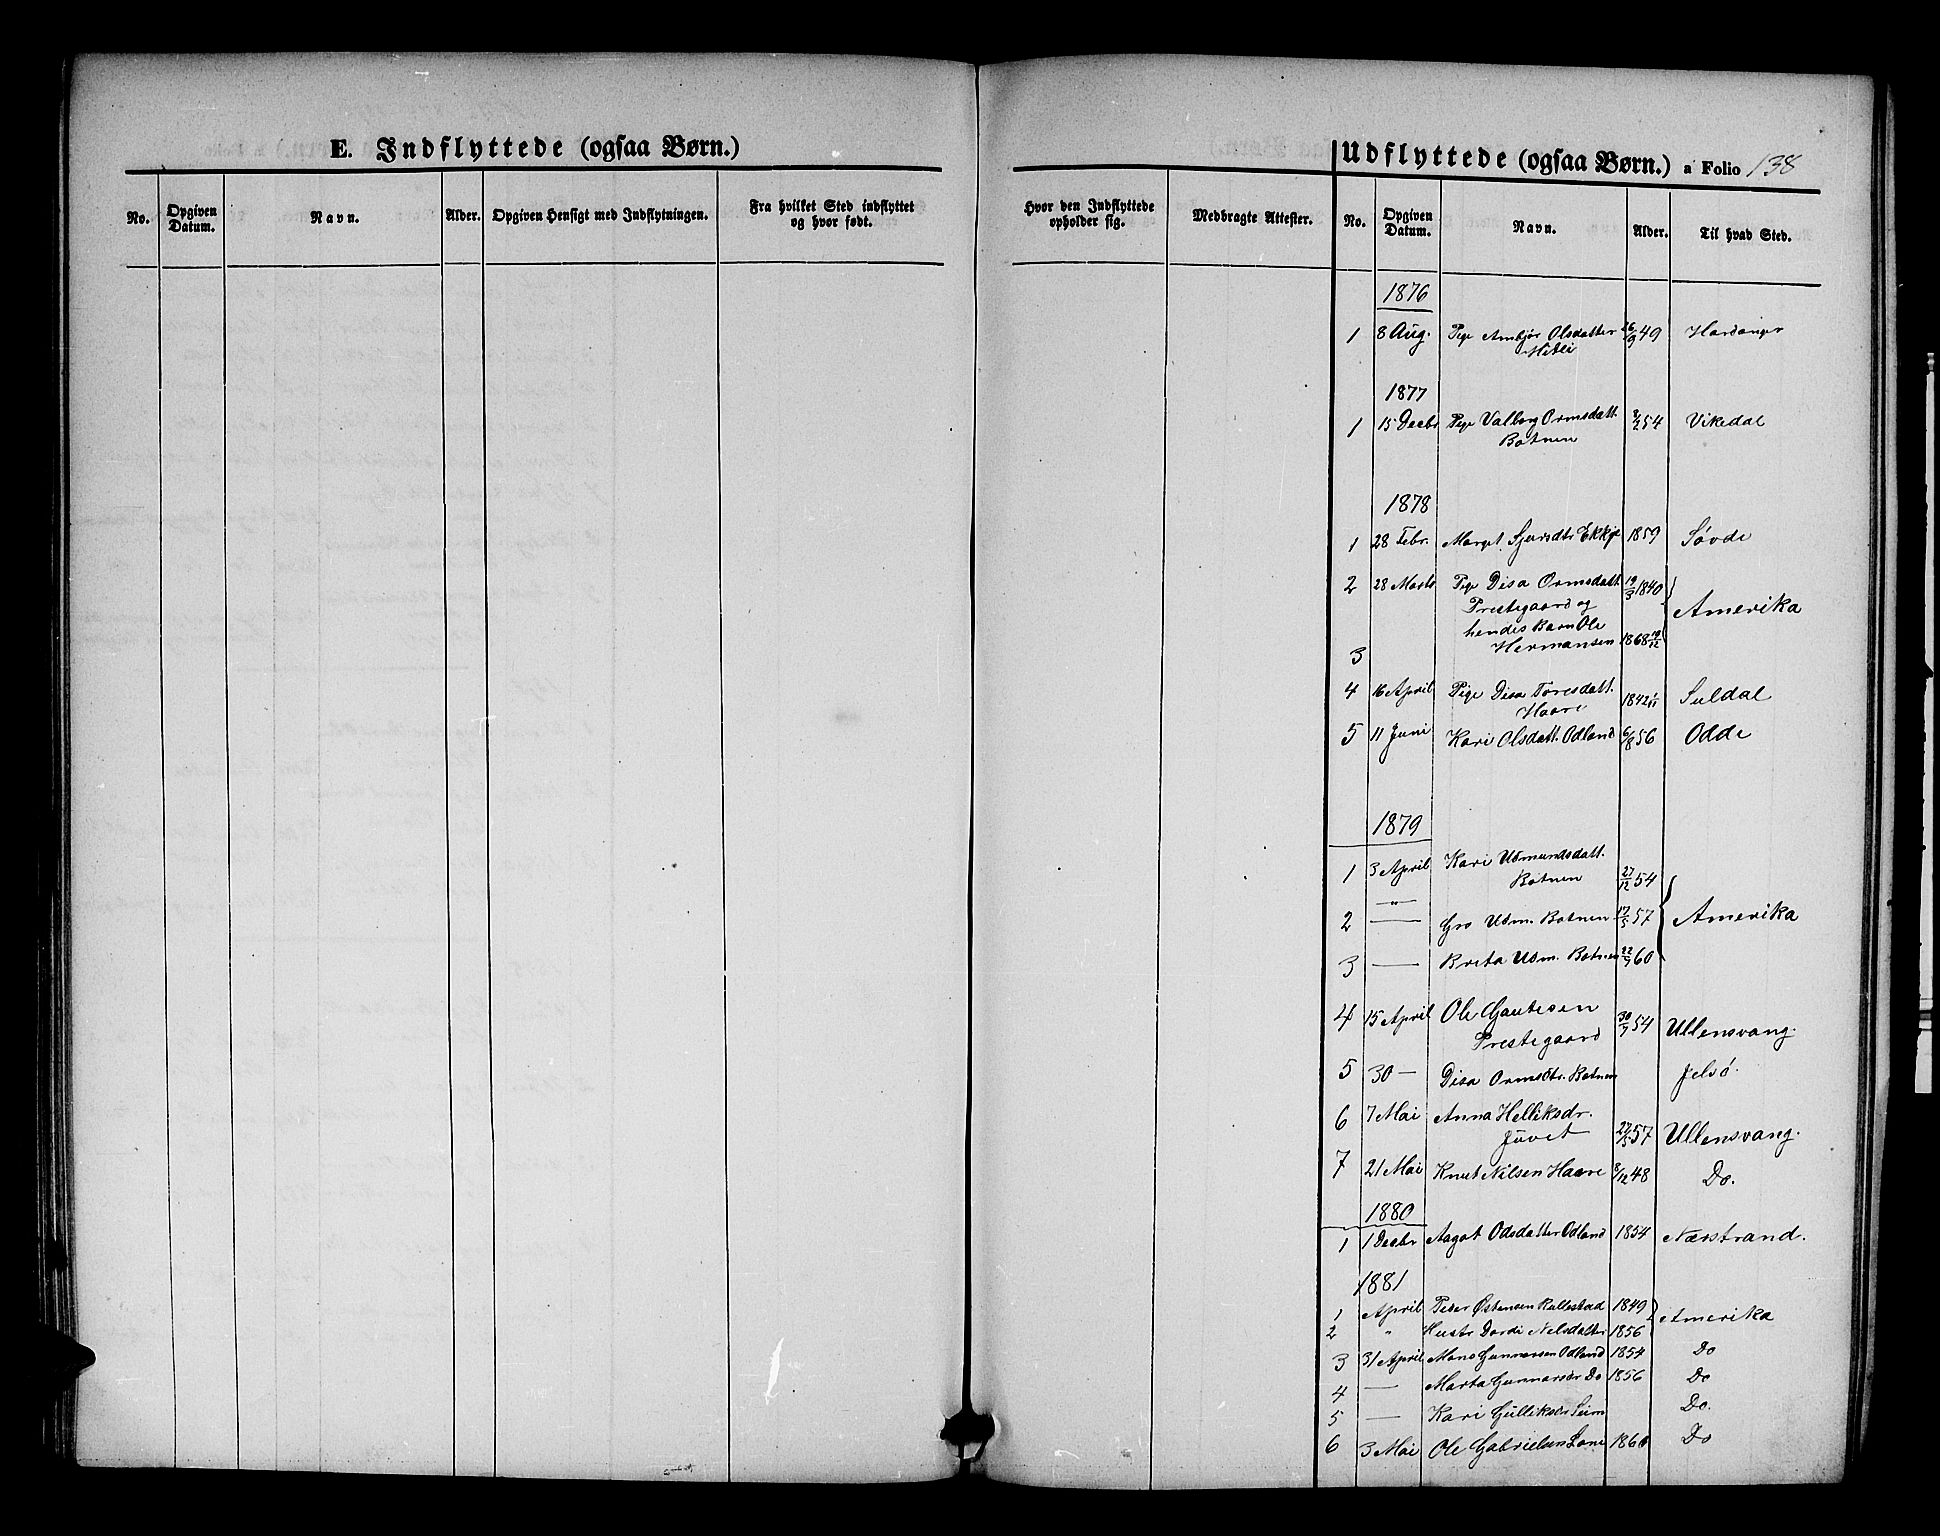 E. Indflyttede (ogsaa Børn.)
No. Opgiven Datum. Navn. Alder. Opgiven Hensigt med Indflytningen. Fra hvilket Sted indflyttet og hvor født.
Udflyttede (ogsaa Børn.) a Folio 138
Hvor den Indflyttede opholder sig. Medbragte Attester. No. Opgiven Datum. Navn. Alder. Til hvad Sted.
1876
1 8 Aug. Pige Ambjør Olsdatter 26/9 49 Hardanger
1877
1 15 Decbr Pige Valborg Ormsdatt. 54 Vikedal
Botnen
1878
1 28 Febr. Marget. Sjursdtr Ekkje 1859 Søvde
2 28 Marts Pige Disa Ormsdatt. 19/3 1840
Prestegaard og Amerika
hendes Barn Ole
3 Hermansen 1868 19/12
4 16 April Pige Disa Toresdatt. 1842 1/11 Suldal
Haare
5 11 Juni Kari Olsdatt. Odland 6/8 56 Odde
1879
1 3 April Kari Udmundsdatt.
Botnen 27/12 54
2 — " — Gro Udm. Botnen 17/5 57 Amerika
3 — Brita Udm. Botnen 22/7 60
4 15 April Ole Gautesen
Prestegaard 30/7 54 Ullensvang.
5 30 — Disa Ormsdtr. Botnen Jelsø.
6 7 Mai Anna Helliksdr.
Juvet 27/5 57 Ullensvang.
7 21 Mai Knut Nilsen Haare 8/12 48 Do.
1880
1 1 Decbr Aagot Odsdatter Odland 1854 Nærstrand.
1881
1 April Peder Østensen Rullestad 1849 Amerika
2 " Hustr Dordi Nelsdatter 1856
3 31 April Mons Gunnarsen Odland 1854 Do
4 — Marta Gunnarsdr Do 1856 Do
5 — Kari Gulliksdr Seim Do.
6 3 Mai Ole Gabrielsen Lone Do